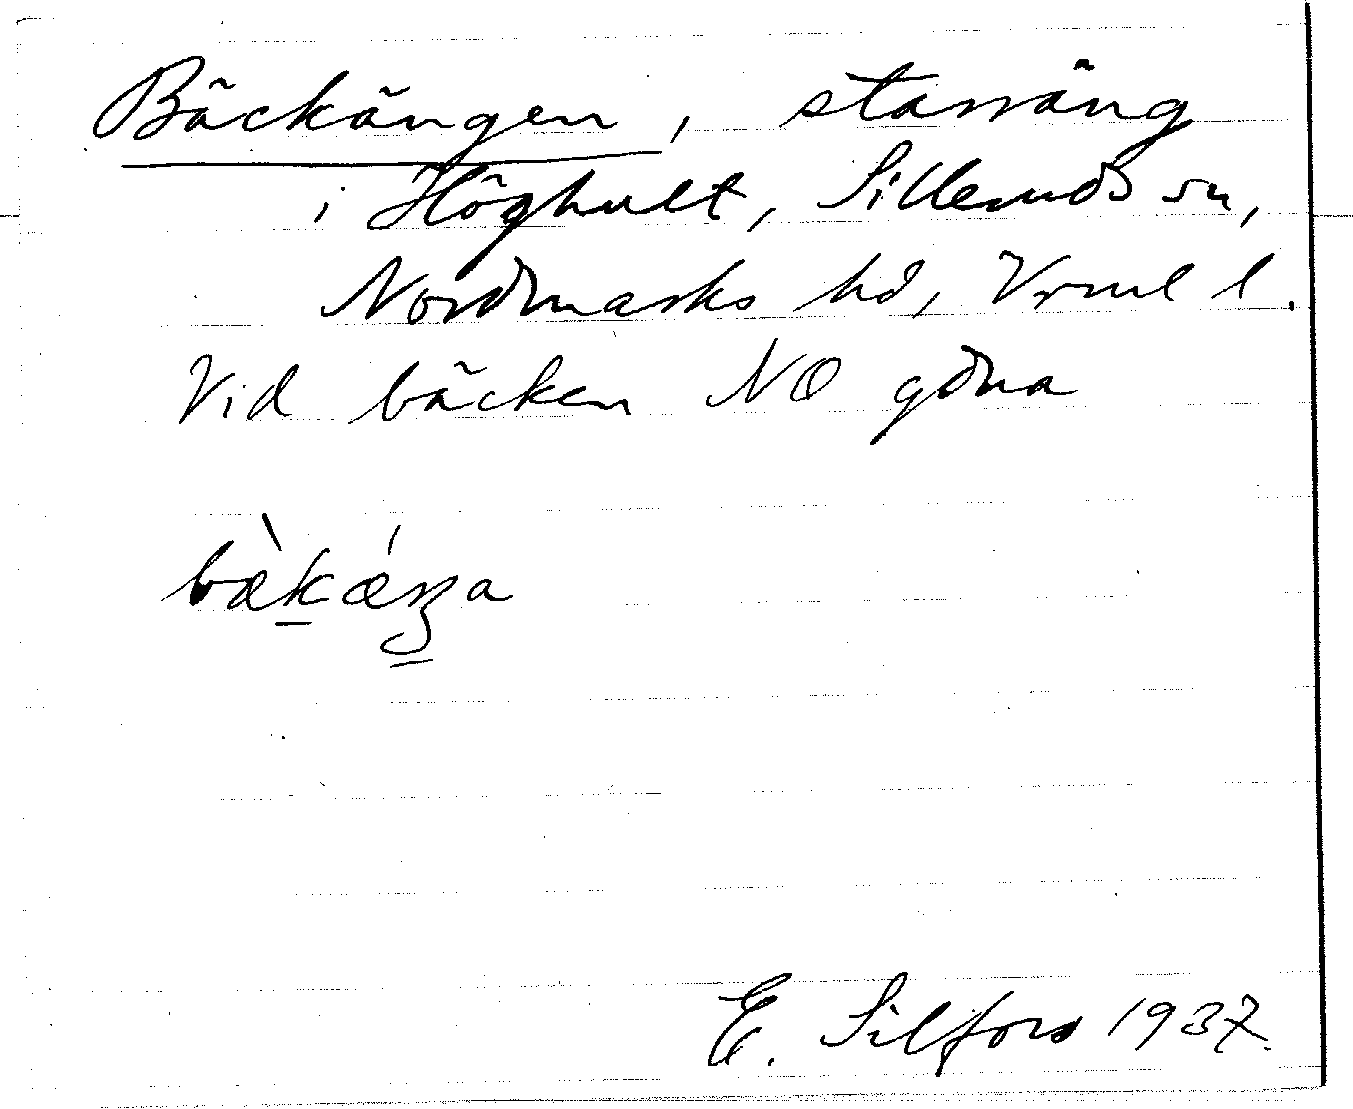 Bäckängen, starräng
i Höghult, Silleruds sn,
Nordmarks hd, Vrml l.
Vid bäcken NO gdna
bæ̀kǽŋa
E. Silfors 1937.